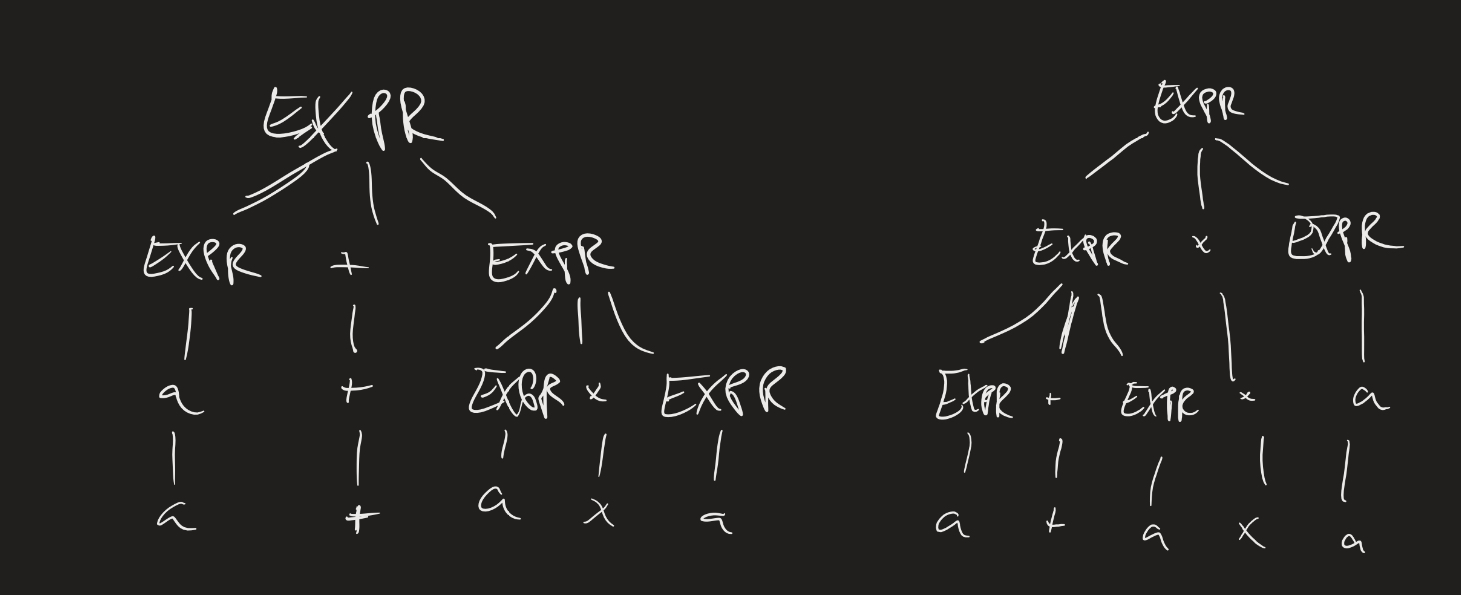 EXPR EXPR
EXPR + EXPR EXPR x EXPR
a + EXPR x EXPR EXPR + EXPR x a
a + a x a a + a x a